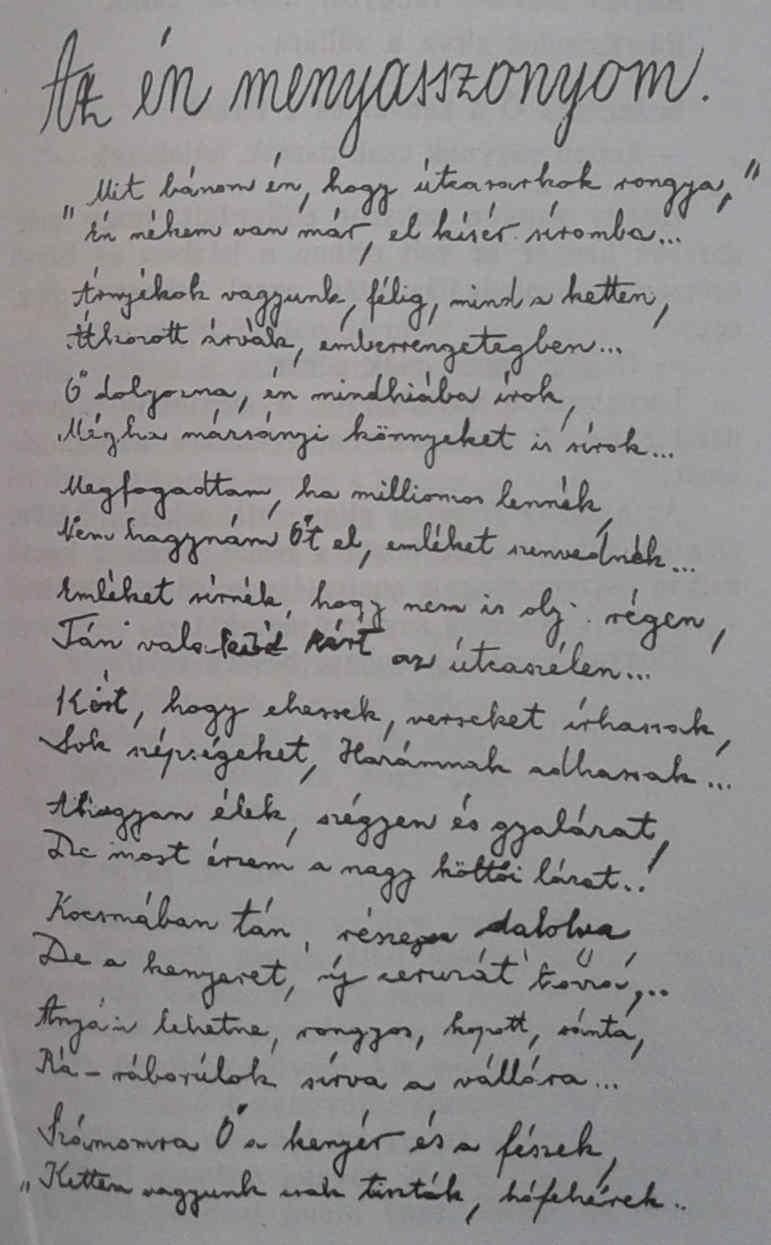 Az én menyasszonyom.
"Mit bánom én, hogy útcasarkok rongya,"
"Én nékem van már, el kísér síromba...
Árnyékok vagyunk, félig, mind a ketten,
Átkozott árvák, emberrengetegben...
Ő dolgozna, én mindhiába írok,
Mégha mázsányi könnyeket is sírok...
Megfogadtam, ha milliomos lennék,
Nem hagynám Őt el, emléket szenvednék...
Emléket sírnék, hogy nem is oly régen,
Tán az útcaszélen...
Kért, hogy ehessek, verseket írhassak,
Sok szépségeket, Hazámnak adhassak...
Ahogyan élek, szégyen és gyalázat,
De most érzem a nagy költői lázat..
Kocsmában tán, részegen dalolva,
De a kenyeret, új ceruzát
Anyá is lehetne, rongyos, kopott, sánta,
Rá-ráborúlok sírva a vállára...
Számomra Ő a kenyér és a fészek,
"Ketten vagyunk csak tiszták, hófehérek..